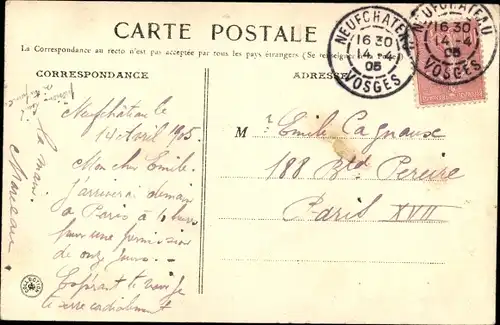 CARTE POSTALE
La Correspondance au recto n'est pas acceptée par tous les pays étrangers (Se renseigner
CORRESPONDANCE
ADRESSE
NEUFCHATEAU
16 30
14 - 4
05
VOSGES
NEUFCHATEAU
16 30
14 - 4
05
VOSGES
Neufchâteau le
14 Avril 1905
Mon cher Emile.
J'arriverai demain
a Paris à
pour une permission
de onze jours.
Espérant te voir je
te serre cordialement
la main.
Mr Emile Cagnaux
188 Bd Pereire
Paris XVII
COLLECTION